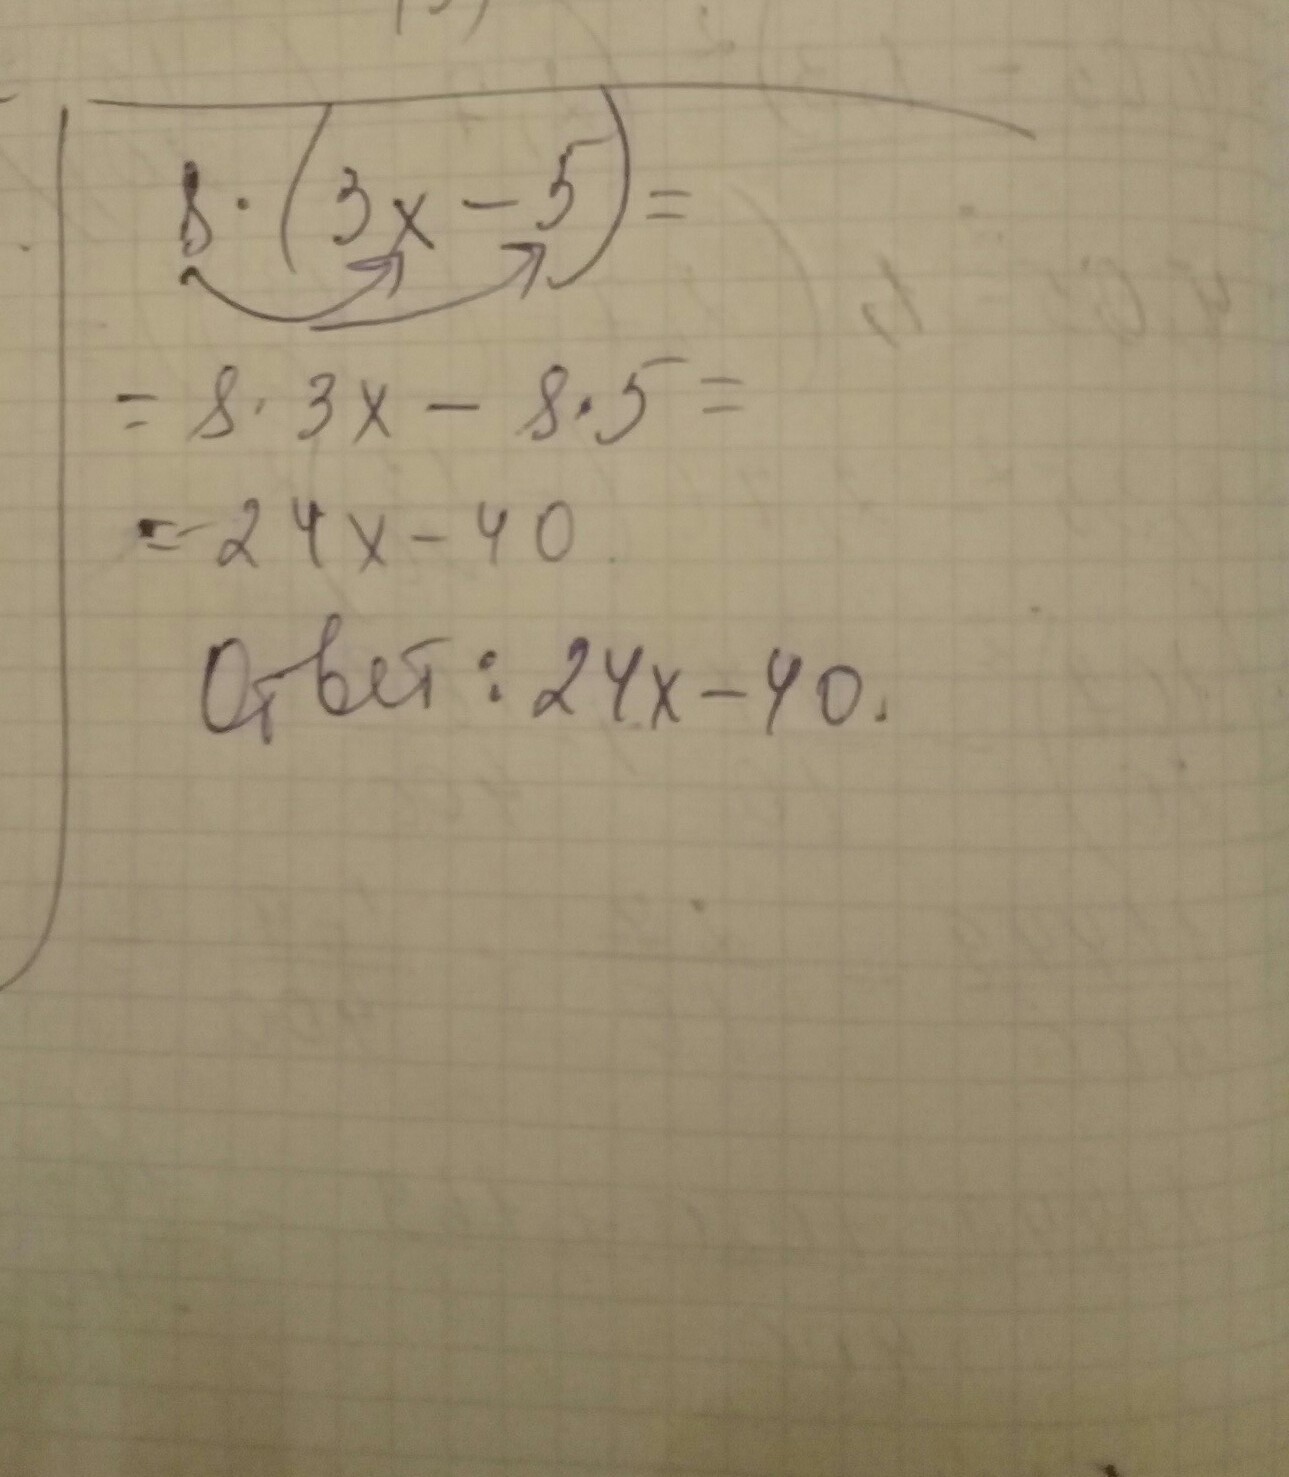 8·(3x-5)=
=8·3x-8·5=
=24x-40
Ответ: 24x-40.